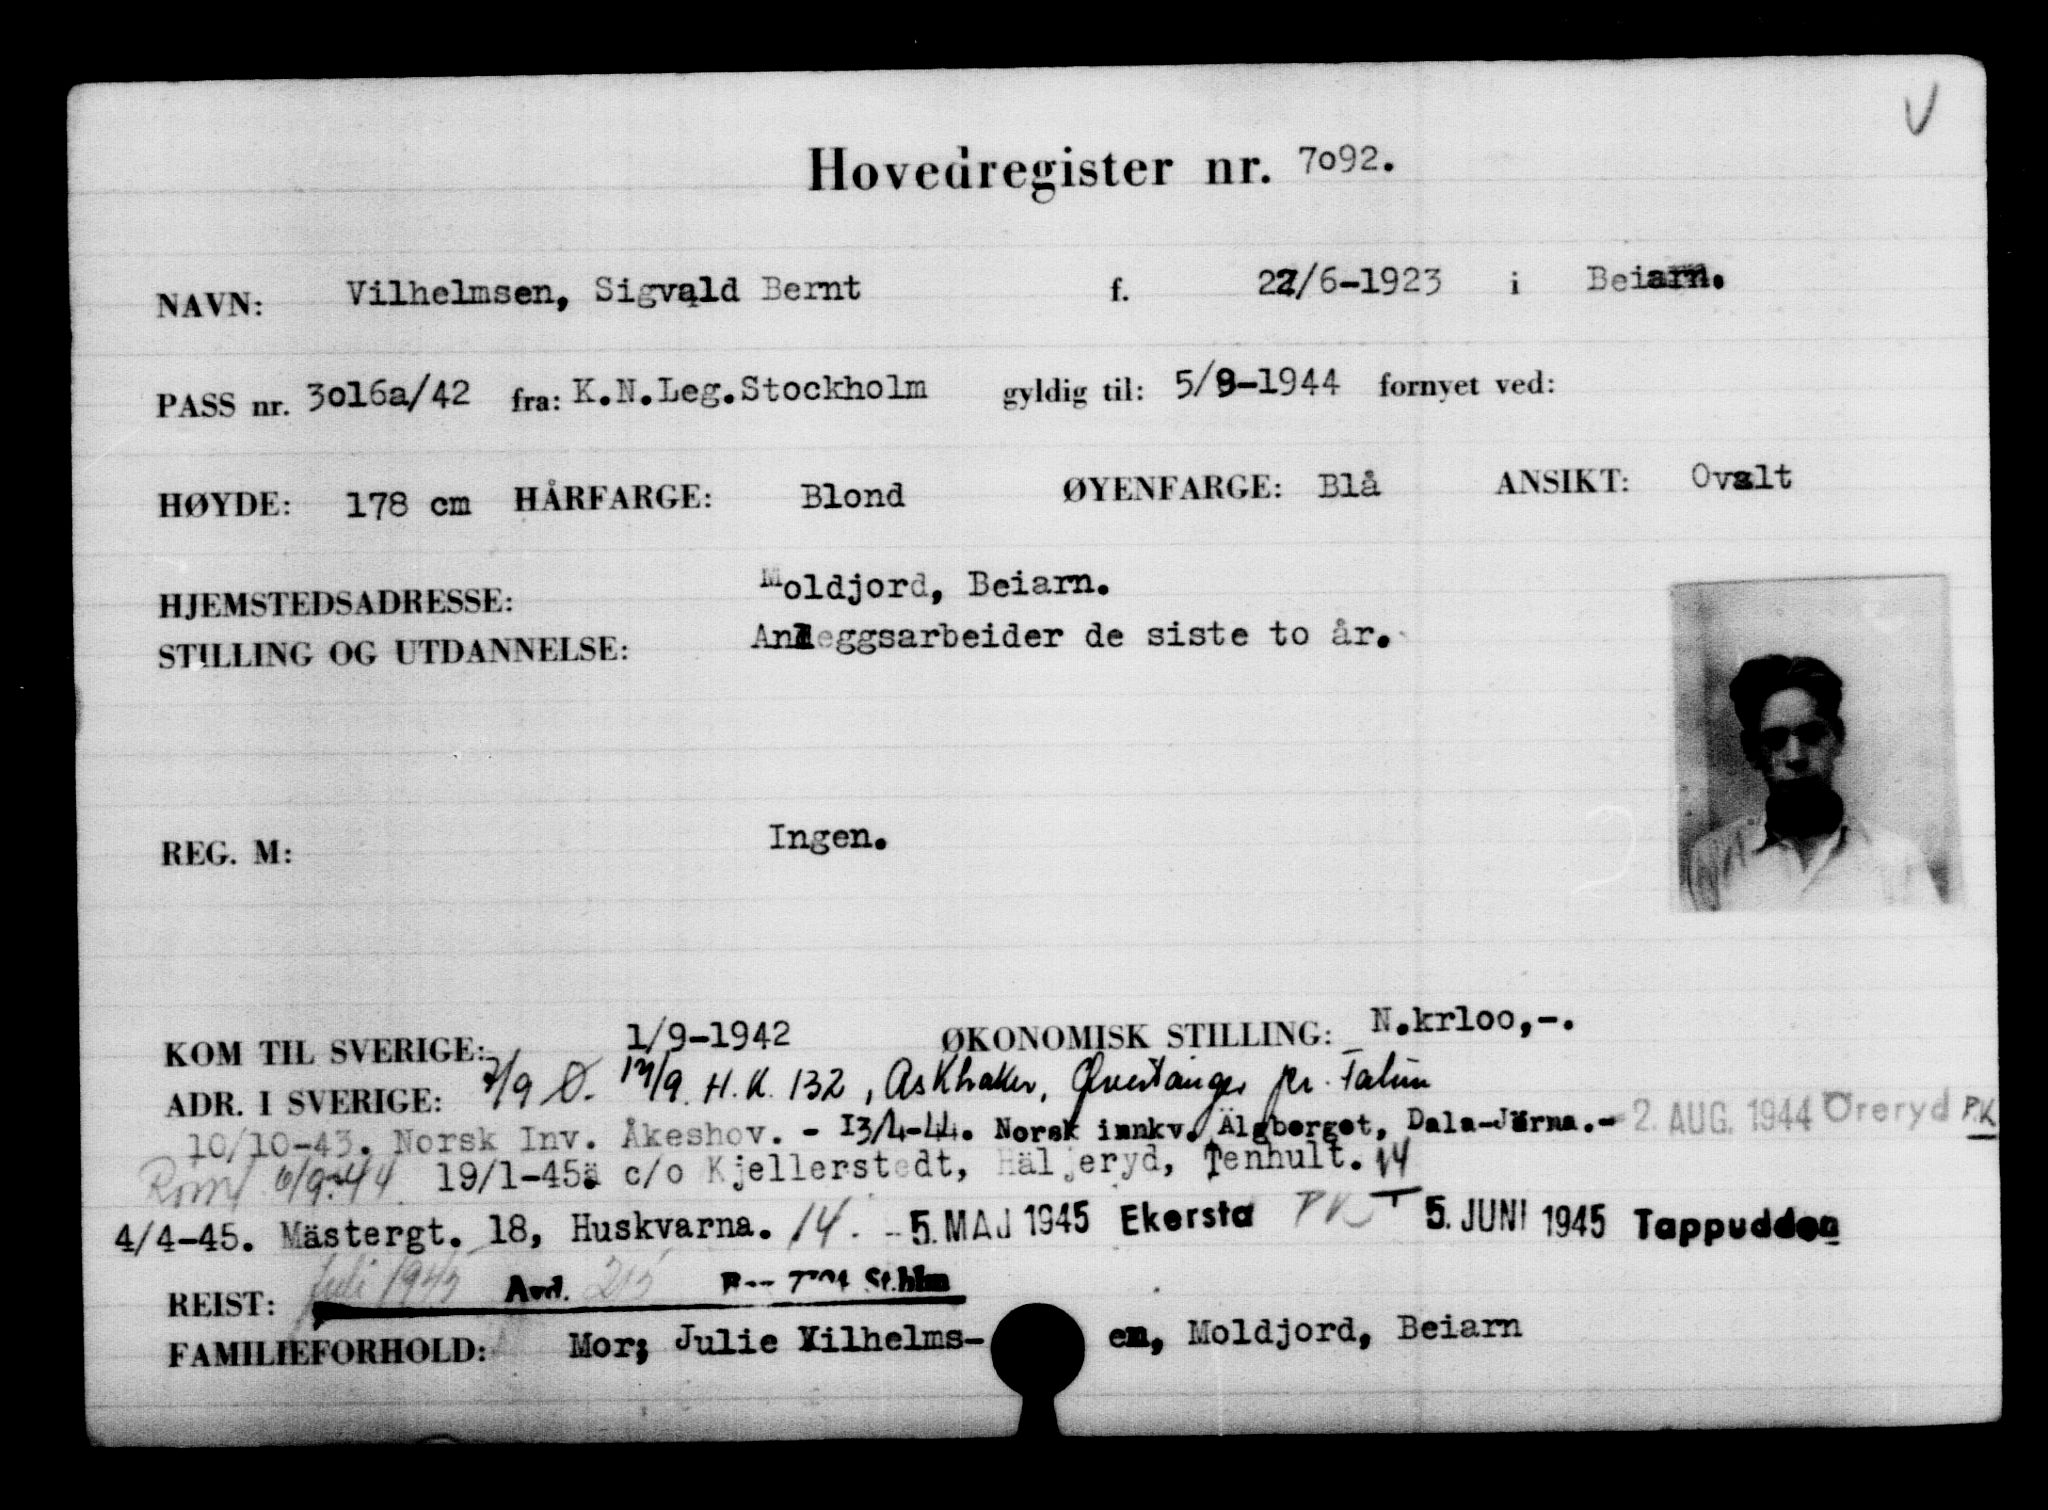 V
Hovedregister nr. 7092.
NAVN: Vilhelmsen, Sigvald Bernt f. 22/6-1923 i Beiarn.
PASS nr. 3016a/42 fra: K.N.Leg.Stockholm gyldig til: 5/9-1944 fornyet ved:
HØYDE: 178 cm HÅRFARGE: Blond ØYENFARGE: Blå ANSIKT: Ovalt
HJEMSTEDSADRESSE: Moldjord, Beiarn.
STILLING OG UTDANNELSE: Anleggsarbeider de siste to år.
REG. M: Ingen.
KOM TIL SVERIGE: 1/9-1942 ØKONOMISK STILLING: N.krloo,-.
ADR. I SVERIGE: 7/9 Ø. 17/9 H.K. 132, pr.
10/10-43. Norsk Inv. Åkeshov. - 13/4-44. Norsk innkv. Älgberget, Dala-Järna.- 2. AUG. 1944 Öreryd P.K
6/9-44 19/1-45 c/o Kjellerstedt, Häljeryd, Tenhult. 14
4/4-45. Mästergt. 18, Huskvarna. 14. - 5. MAJ 1945 Ekersta 5. JUNI 1945 Tappudden
REIST: Juli 1945 Avd. 215 Sthlm
FAMILIEFORHOLD: Mor; Julie Vilhelms- en, Moldjord, Beiarn